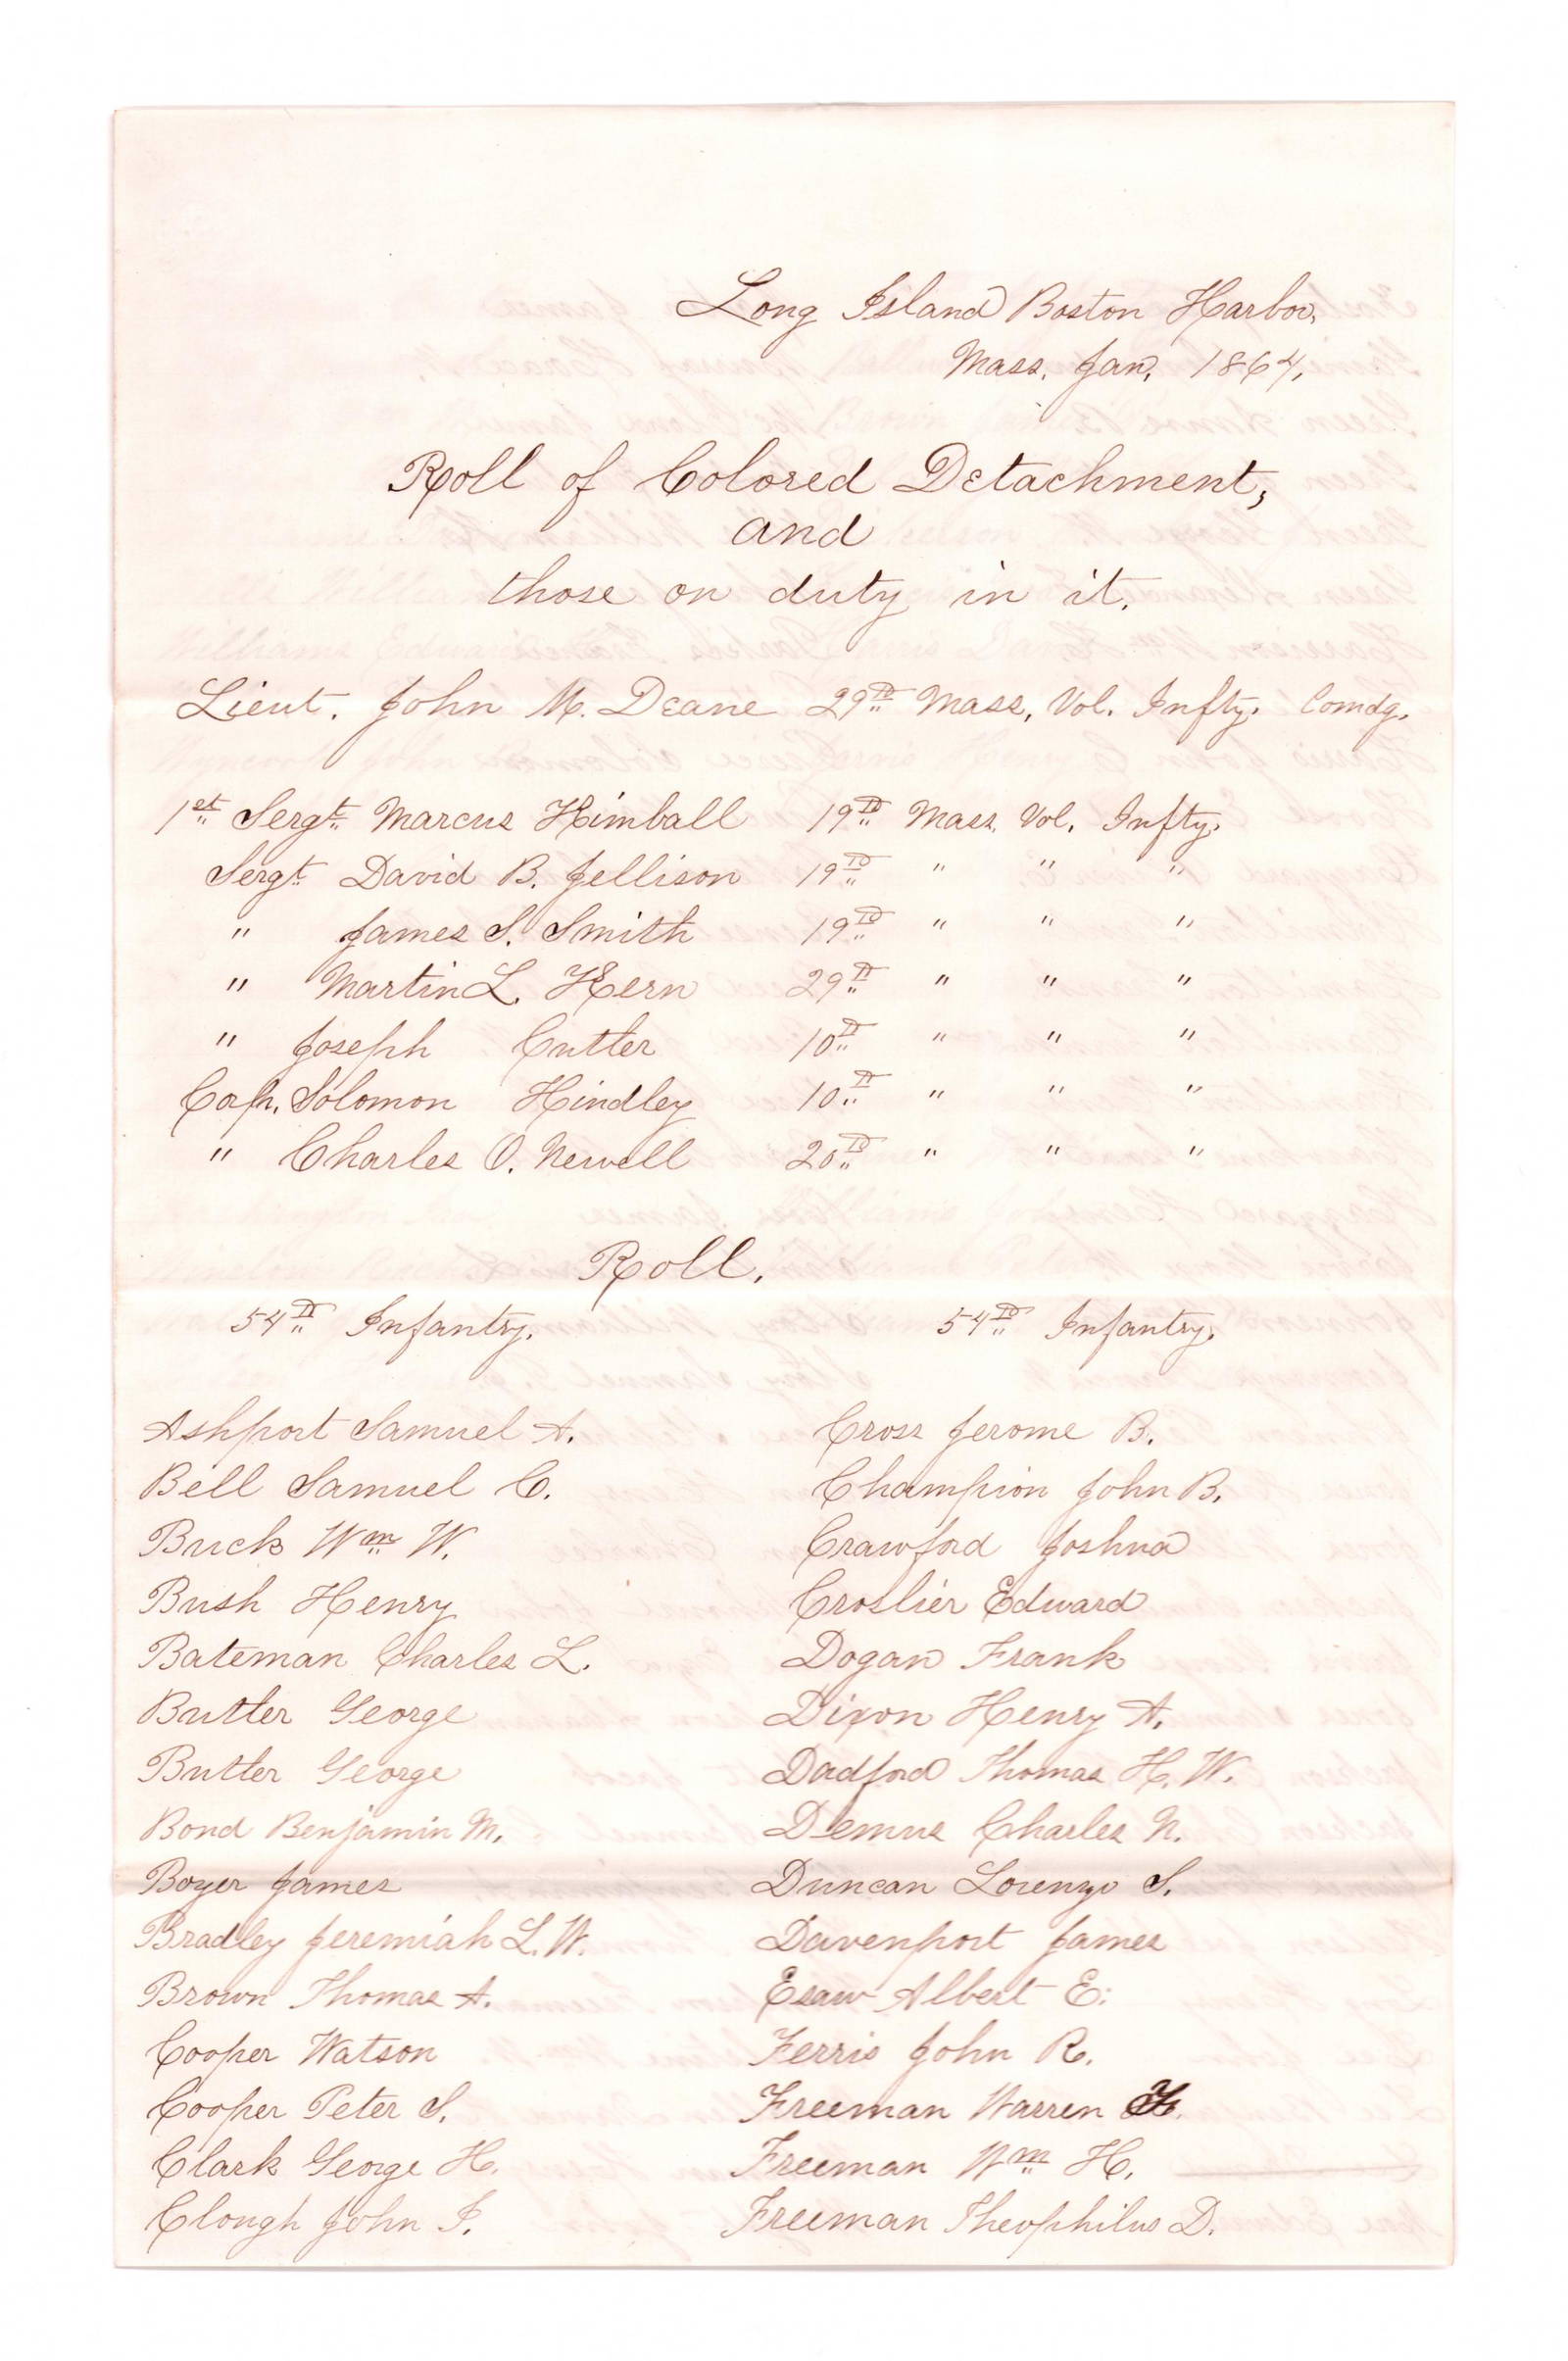 Long Island Boston Harbor,
Mass. Jan. 1864.
Roll of Colored Detachment,
and
those on duty in it.
Lieut. John M. Deane 29th Mass. Vol. Infty. Comdg.
1st Sergt. Marcus Kimball 19th Mass. Vol. Infty.
Sergt. David B. Jellison 19th " " "
" James S. Smith 19th " " "
" Martin L. Kern 29th " " "
" Joseph Cutler 10th " " "
Corp. Solomon Hindley 10th " " "
" Charles O. Newell 20th " " "
Roll.
54th Infantry.
Ashport Samuel A.
Bell Samuel C.
Buck Wm W.
Bush Henry
Bateman Charles L.
Butler George
Butler George
Bond Benjamin M.
Boyer James
Bradley Jeremiah L. W.
Brown Thomas A.
Cooper Watson
Cooper Peter S.
Clark George H.
Clough John I.
54th Infantry.
Cross Jerome B.
Champion John B.
Crawford Joshua
Croslier Edward
Dogan Frank
Dixon Henry A.
Dadford Thomas H. W.
Demus Charles N.
Duncan Lorenzo S.
Davenport James
Esaw Albert E.
Ferris John R.
Freeman Warren
Freeman Wm H.
Freeman Theophilus D.